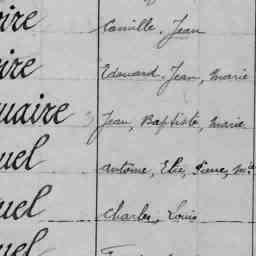 oire Camille, Jean
oire Edouard, Jean, Marie
uaire Jean, Baptiste, Marie
uel Antoine, Elie, Pierre, M
uel Charles, Louis
uel